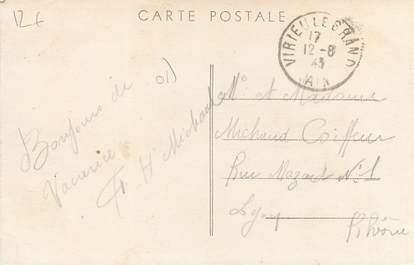 12 €
CARTE POSTALE
VIRIEU LE GRAND
17
12-8
43
AIN
Bonjour de
Vacance
H Michaud
Mr et Madame
Michaud Coiffeur
Rue Mazard N° 1
Lyon
Rhône